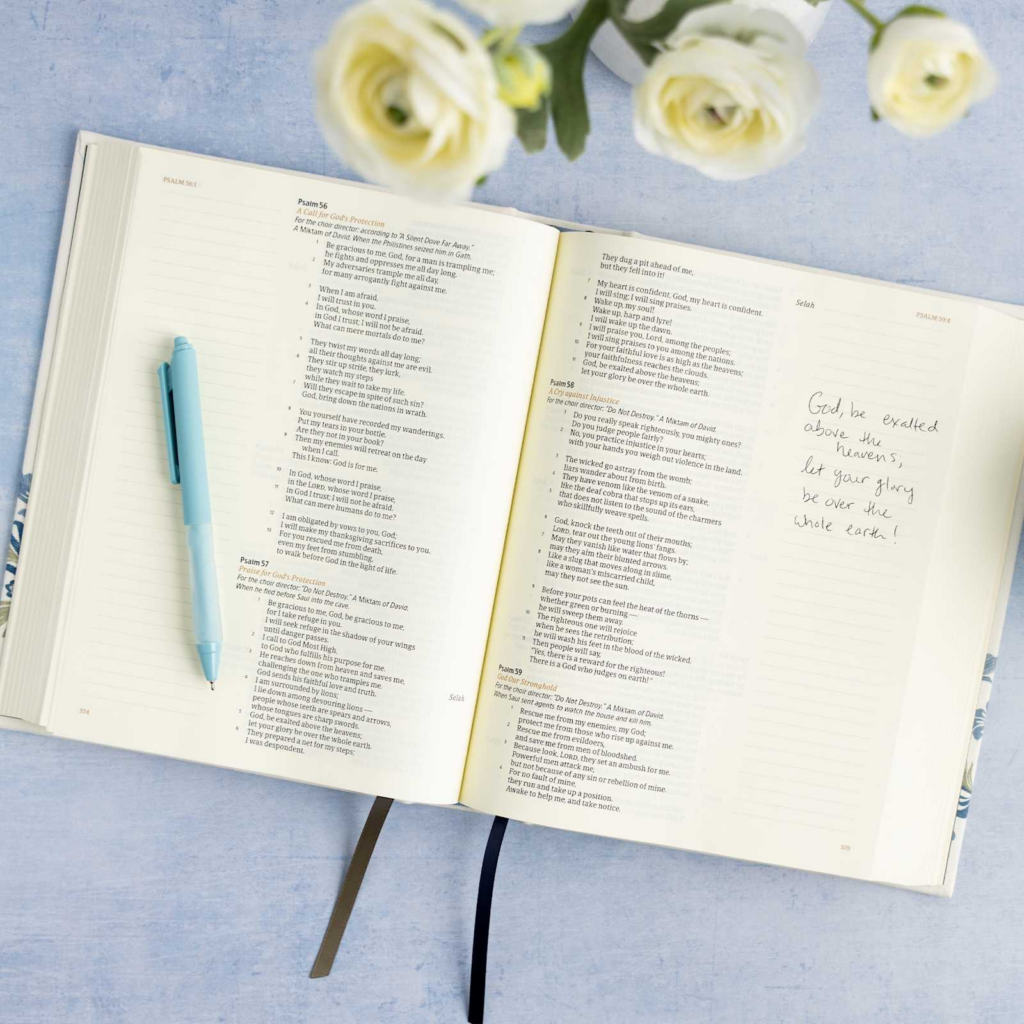 PSALM 56:1
Psalm 56
A Call for God's Protection
For the choir director: according to "A Silent Dove Far Away."
A Miktam of David. When the Philistines seized him in Gath.
1 Be gracious to me, God, for a man is trampling me;
he fights and oppresses me all day long.
2 My adversaries trample me all day,
for many arrogantly fight against me.
3 When I am afraid,
I will trust in you.
4 In God, whose word I praise,
in God I trust; I will not be afraid.
What can mere mortals do to me?
5 They twist my words all day long;
all their thoughts against me are evil.
6 They stir up strife, they lurk,
they watch my steps
while they wait to take my life.
7 Will they escape in spite of such sin?
God, bring down the nations in wrath.
8 You yourself have recorded my wanderings.
Put my tears in your bottle.
Are they not in your book?
9 Then my enemies will retreat on the day
when I call.
This I know: God is for me.
10 In God, whose word I praise,
in the LORD, whose word I praise,
11 in God I trust; I will not be afraid.
What can mere humans do to me?
12 I am obligated by vows to you, God;
I will make my thanksgiving sacrifices to you.
13 For you rescued me from death,
even my feet from stumbling,
to walk before God in the light of life.
Psalm 57
Praise for God's Protection
For the choir director: "Do Not Destroy." A Miktam of David.
When he fled before Saul into the cave.
1 Be gracious to me, God, be gracious to me,
for I take refuge in you.
I will seek refuge in the shadow of your wings
until danger passes.
2 I call to God Most High,
to God who fulfills his purpose for me.
3 He reaches down from heaven and saves me,
challenging the one who tramples me. Selah
God sends his faithful love and truth.
4 I am surrounded by lions;
I lie down among devouring lions —
people whose teeth are spears and arrows,
whose tongues are sharp swords.
5 God, be exalted above the heavens;
let your glory be over the whole earth.
6 They prepared a net for my steps;
I was despondent.
PSALM 59:4
They dug a pit ahead of me,
but they fell into it! Selah
7 My heart is confident, God, my heart is confident.
I will sing; I will sing praises.
8 Wake up, my soul!
Wake up, harp and lyre!
I will wake up the dawn.
9 I will praise you, Lord, among the peoples;
I will sing praises to you among the nations.
10 For your faithful love is as high as the heavens;
your faithfulness reaches the clouds.
11 God, be exalted above the heavens;
let your glory be over the whole earth.
Psalm 58
A Cry against Injustice
For the choir director: "Do Not Destroy." A Miktam of David.
1 Do you really speak righteously, you mighty ones?
Do you judge people fairly?
2 No, you practice injustice in your hearts;
with your hands you weigh out violence in the land.
3 The wicked go astray from the womb;
liars wander about from birth.
4 They have venom like the venom of a snake,
like the deaf cobra that stops up its ears,
5 that does not listen to the sound of the charmers
who skillfully weave spells.
6 God, knock the teeth out of their mouths;
LORD, tear out the young lions' fangs.
7 May they vanish like water that flows by;
may they aim their blunted arrows.
8 Like a slug that moves along in slime,
like a woman's miscarried child,
may they not see the sun.
9 Before your pots can feel the heat of the thorns —
whether green or burning —
he will sweep them away.
10 The righteous one will rejoice
when he sees the retribution;
he will wash his feet in the blood of the wicked.
11 Then people will say,
"Yes, there is a reward for the righteous!
There is a God who judges on earth!"
Psalm 59
God Our Stronghold
For the choir director: "Do Not Destroy." A Miktam of David.
When Saul sent agents to watch the house and kill him.
1 Rescue me from my enemies, my God;
protect me from those who rise up against me.
2 Rescue me from evildoers,
and save me from men of bloodshed.
3 Because look, LORD, they set an ambush for me.
Powerful men attack me,
but not because of any sin or rebellion of mine.
4 For no fault of mine,
they run and take up a position.
Awake to help me, and take notice.
God, be exalted
above the
heavens,
let your glory
be over the
whole earth!